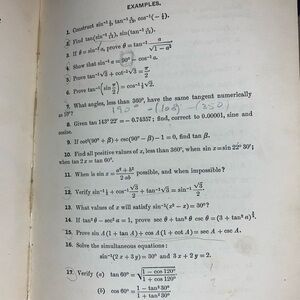 EXAMPLES.
1. Construct sin⁻¹ ½, tan⁻¹ , cos⁻¹(−½).
2. Find tan(sin⁻¹ ), sin(tan⁻¹ ).
3. If θ = sin⁻¹ a, prove θ = tan⁻¹ a/√(1 − a²)
4. Show that sin⁻¹ a = 90° − cos⁻¹ a.
5. Prove tan⁻¹ √3 + cot⁻¹ √3 = π/2
6. Prove tan⁻¹(sin π/2) = cos⁻¹ ½√2.
7. What angles, less than 360°, have the same tangent numerically
as 10°?
8. Given tan 143° 22′ = − 0.74357; find, correct to 0.00001, sine and
cosine.
9. If cot²(90° + β) + csc(90° − β) − 1 = 0, find tan β.
10. Find all positive values of x, less than 360°, when sin x = sin 22° 30′;
when tan 2x = tan 60°.
11. When is sin x = (a² + b²)/2ab possible, and when impossible?
12. Verify sin⁻¹ ½ + cos⁻¹ √3/2 + tan⁻¹ √3 = sin⁻¹ √3/2
13. What values of x will satisfy sin⁻¹(x² − x) = 30°?
14. If tan²θ − sec²α = 1, prove sec θ + tan³θ csc θ = (3 + tan²α)
15. Prove sin A(1 + tan A) + cos A(1 + cot A) = sec A + csc A.
16. Solve the simultaneous equations:
sin⁻¹(2x + 3y) = 30° and 3x + 2y = 2.
17. Verify (a) tan 60° = √((1 − cos 120°)/(1 + cos 120°))
(b) cos 60° = (1 − tan² 30°)/(1 + tan² 30°)